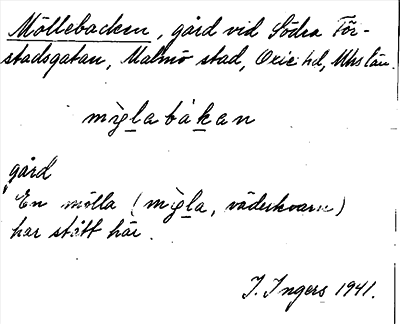 Möllebacken, gård vid Södra För-
stadsgatan, Malmö stad, Oxie hd, Mhs län.
mìglabàkan
gård
En mölla (mìgla, väderkvarn)
har stått här.
I. Ingers 1941.